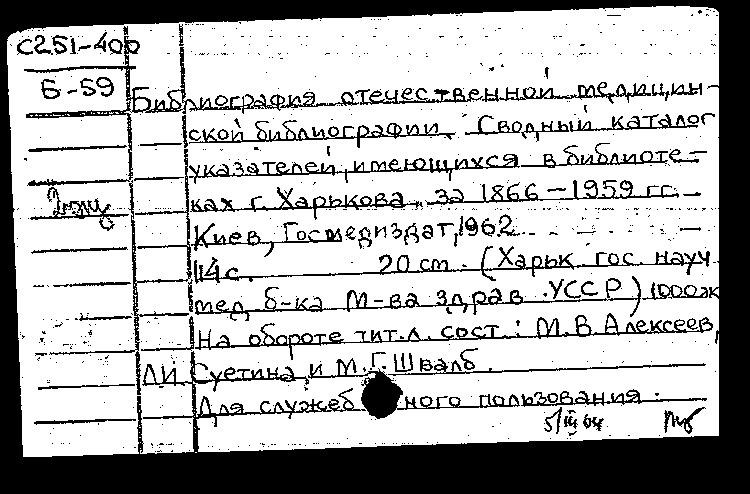 С251-400
Б-59
Библиография отечественной медицин-
ской библиографии. Сводный каталог
указателей, имеющихся в библиоте-
ках г. Харькова, за 1866-1959 гг.
Киев, Госмедиздат, 1962.
114 с. 20 см. (Харьк. гос. науч.
мед. б-ка М-ва здрав. УССР) 1000 эк
На обороте тит. л. сост.: М.В. Алексеев,
Л.И. Суетина и М.Г. Швалб.
Для служебного пользования.
5/III 64